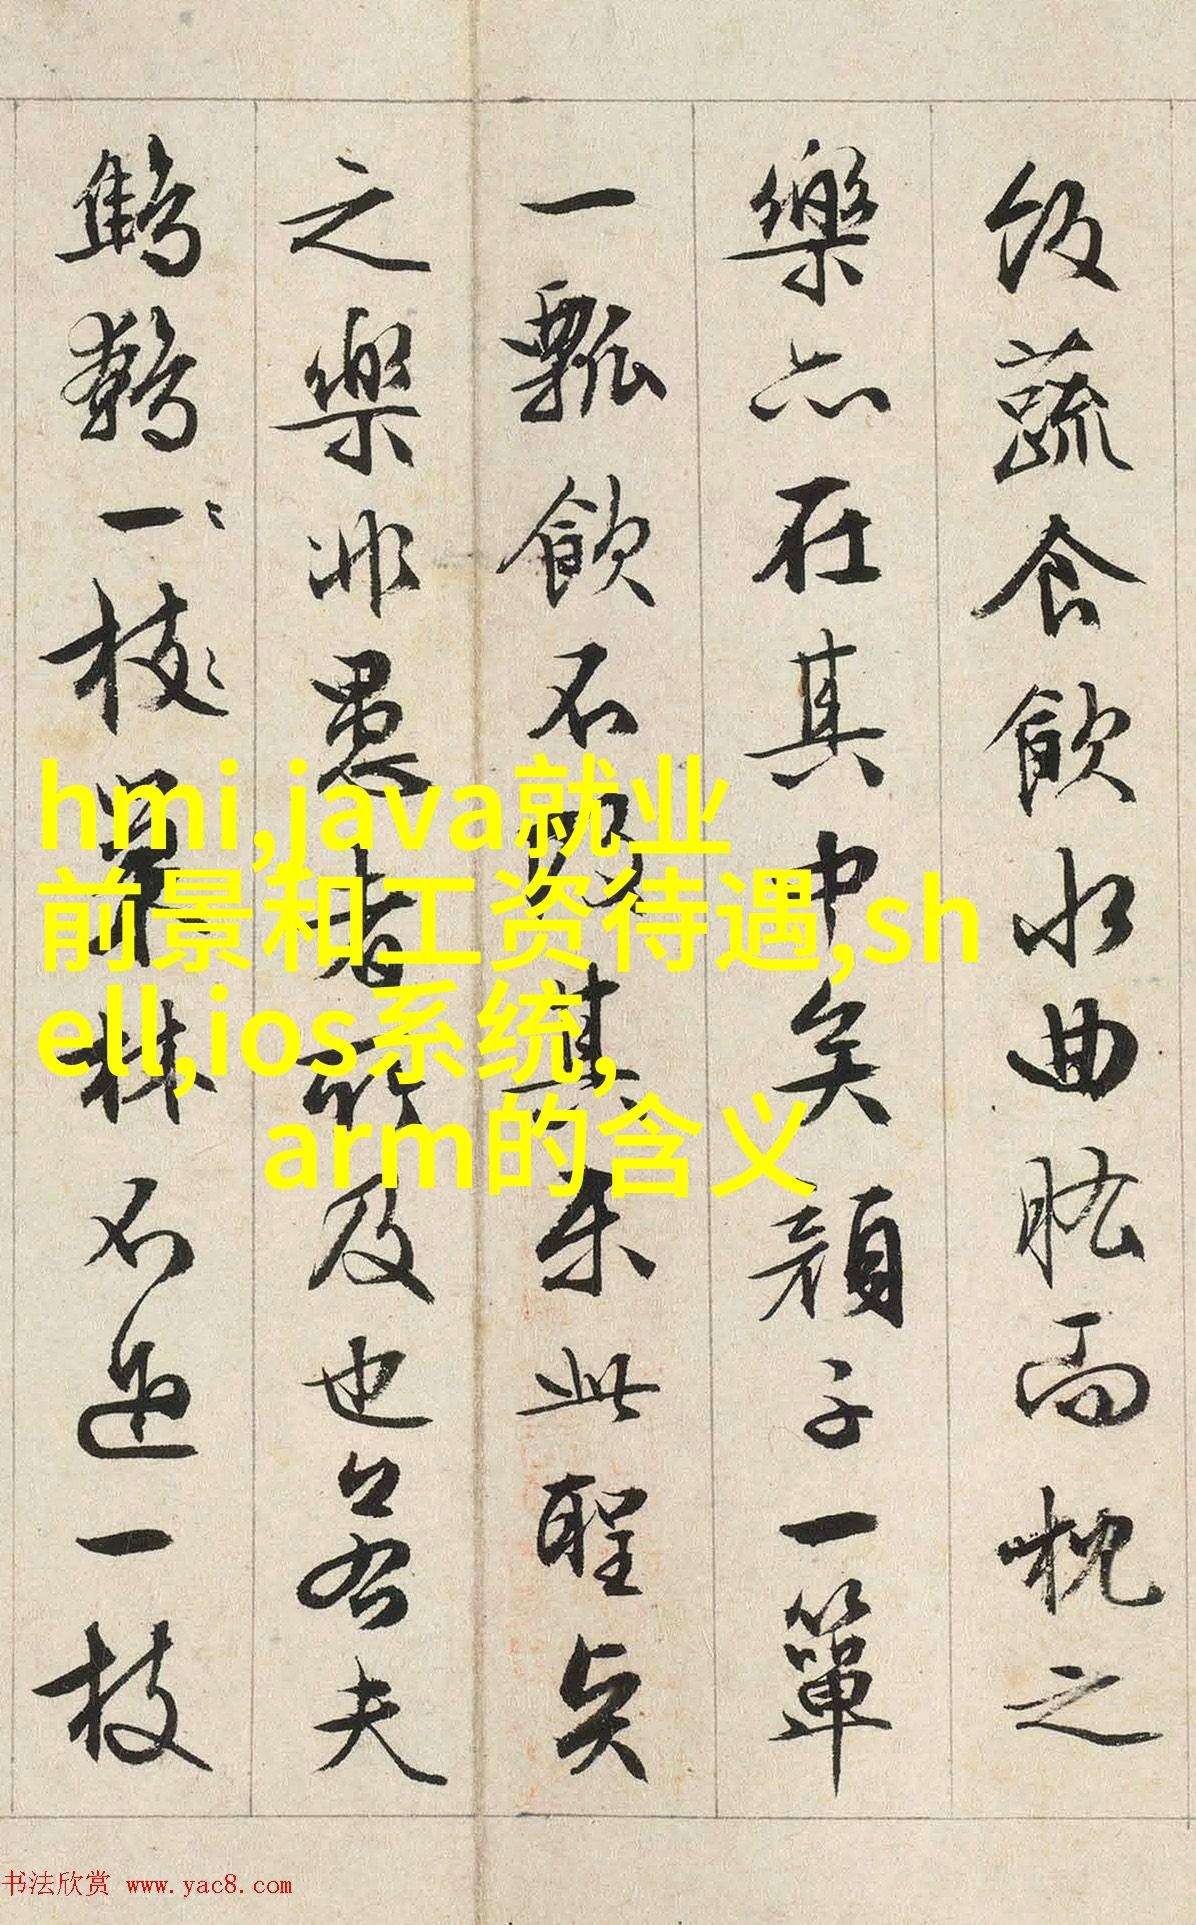 飯蔬食飲水曲肱而枕之
樂亦在其中矣顔子一簞
一瓢飲不改其樂此聖賢
之樂非愚者所及也若夫
鷦鷯一枝巢林不過一枝
hmi,java就业
前景和工资待遇,sh
ell,ios系统,
arm的含义
书法欣赏 www.yac8.com